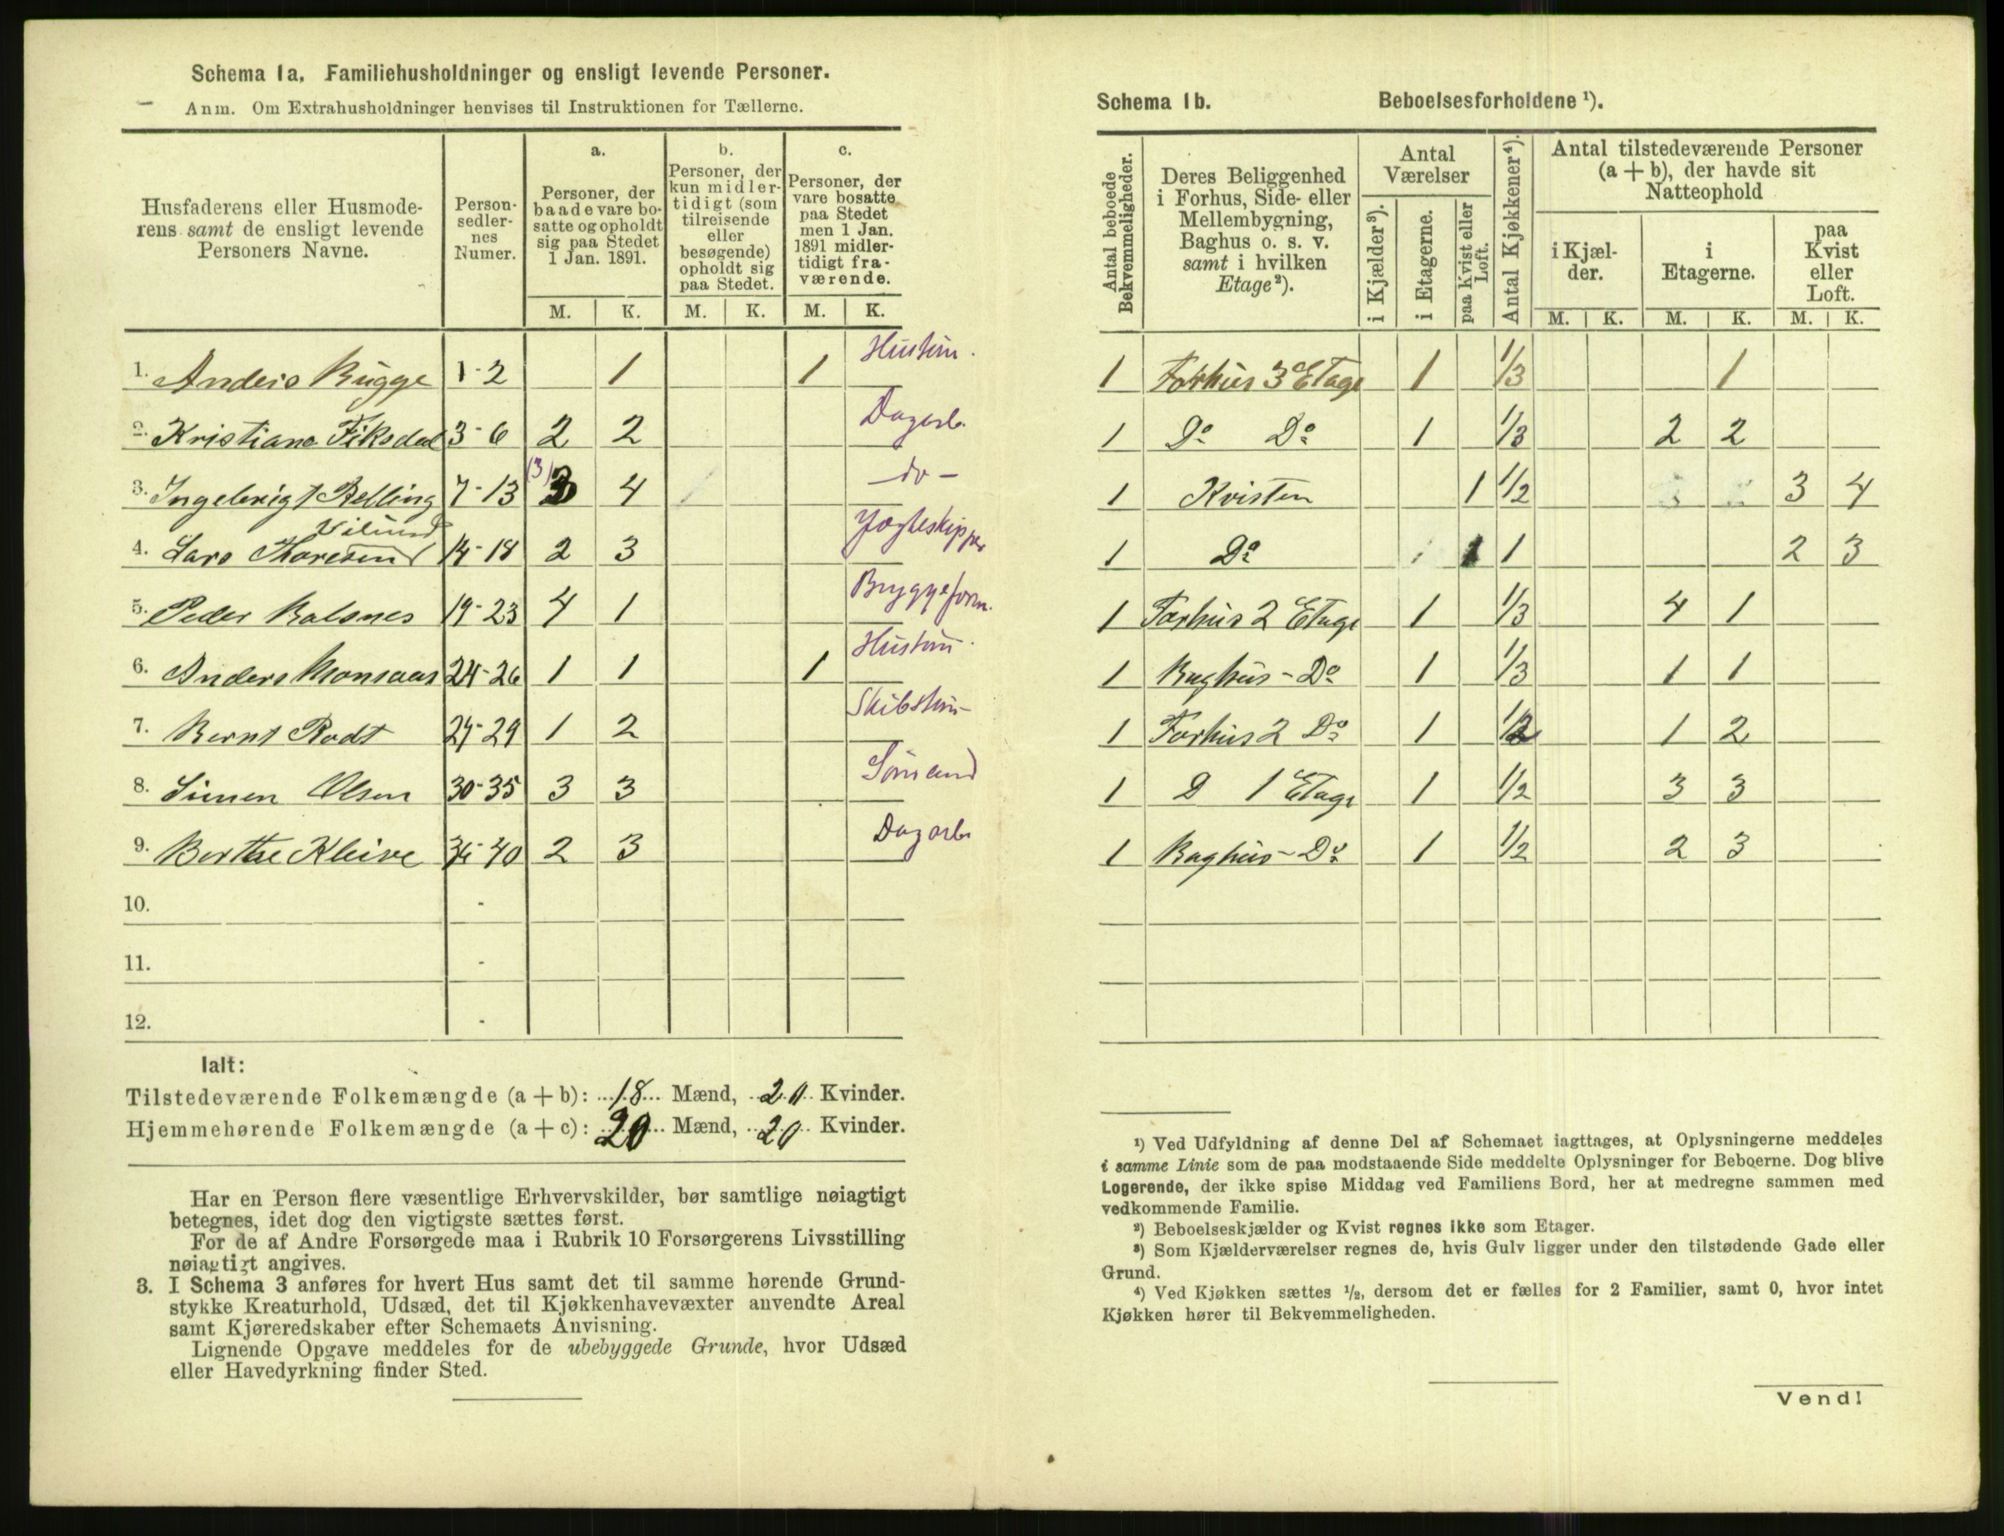 Schema 1a. Familiehusholdninger og ensligt levende Personer.
Anm. Om Extrahusholdninger henvises til Instruktionen for Tællerne.
Husfaderens eller Husmoderens samt de ensligt levende Personers Navne.
Personsedlernes Numer.
a. Personer, der baade vare bosatte og opholdt sig paa Stedet 1 Jan. 1891.
b. Personer, der kun midlertidigt (som tilreisende eller besøgende) opholdt sig paa Stedet.
c. Personer, der vare bosatte paa Stedet men 1 Jan. 1891 midlertidigt fraværende.
M. K. M. K. M. K.
1. Anders Bugge 1-2 1 1 Hustøm.
2. Kristiane Fiksdal 3-6 2 2 Dagarb.
3. Ingebrigt Helling 7-13 (3) 3 4 - do -
4. Lars Thoresen Vilund 14-18 2 3 Jagteskipper
5. Peder Balsnes 19-23 4 1 Bryggeform.
6. Anders Monsaas 24-26 1 1 1 Hustøm.
7. Bernt Rodt 27-29 1 2 Skibstøm-
8. Simen Olsen 30-35 3 3 Sømand
9. Berthe Kleive 36-40 2 3 Dagarb
10. -
11. -
12. -
Ialt:
Tilstedeværende Folkemængde (a + b): 18 Mænd, 20 Kvinder.
Hjemmehørende Folkemængde (a + c): 20 Mænd, 20 Kvinder.
Har en Person flere væsentlige Erhvervskilder, bør samtlige nøiagtigt
betegnes, idet dog den vigtigste sættes først.
For de af Andre Forsørgede maa i Rubrik 10 Forsørgerens Livsstilling
nøiagtigt angives.
3. I Schema 3 anføres for hvert Hus samt det til samme hørende Grund-
stykke Kreaturhold, Udsæd, det til Kjøkkenhavevæxter anvendte Areal
samt Kjøreredskaber efter Schemaets Anvisning.
Lignende Opgave meddeles for de ubebyggede Grunde, hvor Udsæd
eller Havedyrkning finder Sted.
Schema 1b. Beboelsesforholdene ¹).
Antal beboede Bekvemmeligheder.
Deres Beliggenhed i Forhus, Side- eller Mellembygning, Baghus o. s. v. samt i hvilken Etage²).
Antal Værelser
i Kjælder³). i Etagerne. paa Kvist eller Loft.
Antal Kjøkkener⁴).
Antal tilstedeværende Personer (a + b), der havde sit Natteophold
i Kjælder. i Etagerne. paa Kvist eller Loft.
M. K. M. K. M. K.
1 Forhus 3 Etage 1 1/3 1
1 Do Do 1 1/3 2 2
1 Kvisten 1 1/2 3 4
1 Do 1 1 2 3
1 Forhus 2 Etage 1 1/3 4 1
1 Baghus - Do 1 1/3 1 1
1 Forhus 2 Do 1 1/2 1 2
1 D 1 Etage 1 1/2 3 3
1 Baghus - Do 1 1/2 2 3
¹) Ved Udfyldning af denne Del af Schemaet iagttages, at Oplysningerne meddeles
i samme Linie som de paa modstaaende Side meddelte Oplysninger for Beboerne. Dog blive
Logerende, der ikke spise Middag ved Familiens Bord, her at medregne sammen med
vedkommende Familie.
²) Beboelseskjælder og Kvist regnes ikke som Etager.
³) Som Kjælderværelser regnes de, hvis Gulv ligger under den tilstødende Gade eller
Grund.
⁴) Ved Kjøkken sættes ½, dersom det er fælles for 2 Familier, samt 0, hvor intet
Kjøkken hører til Bekvemmeligheden.
Vend!